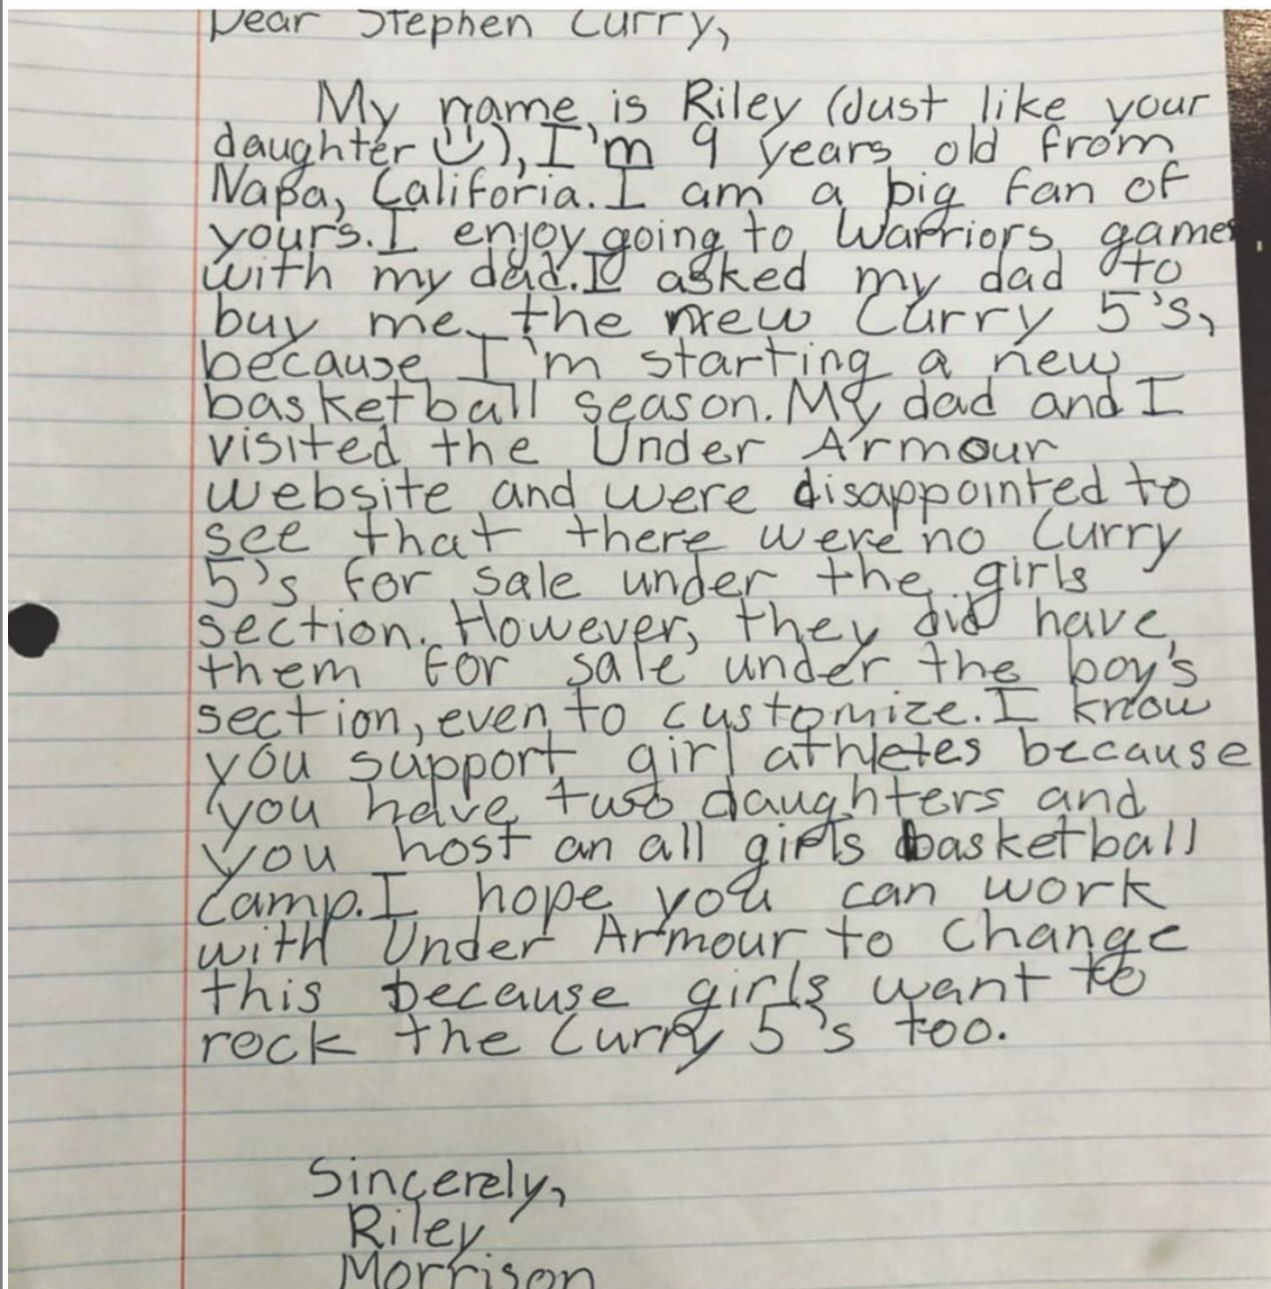 Dear Stephen Curry,
My name is Riley (Just like your
daughter :)), I'm 9 years old from
Napa, Califoria. I am a big fan of
yours. I enjoy going to Warriors games
with my dad. I asked my dad to
buy me the new Curry 5's,
because I'm starting a new
basketball season. My dad and I
visited the Under Armour
website and were disappointed to
see that there were no Curry
5's for sale under the girls
section. However, they did have
them for sale under the boy's
section, even to customize. I know
you support girl athletes because
you have two daughters and
you host an all girls basketball
camp. I hope you can work
with Under Armour to change
this because girls want to
rock the Curry 5's too.
Sincerely,
Riley
Morrison